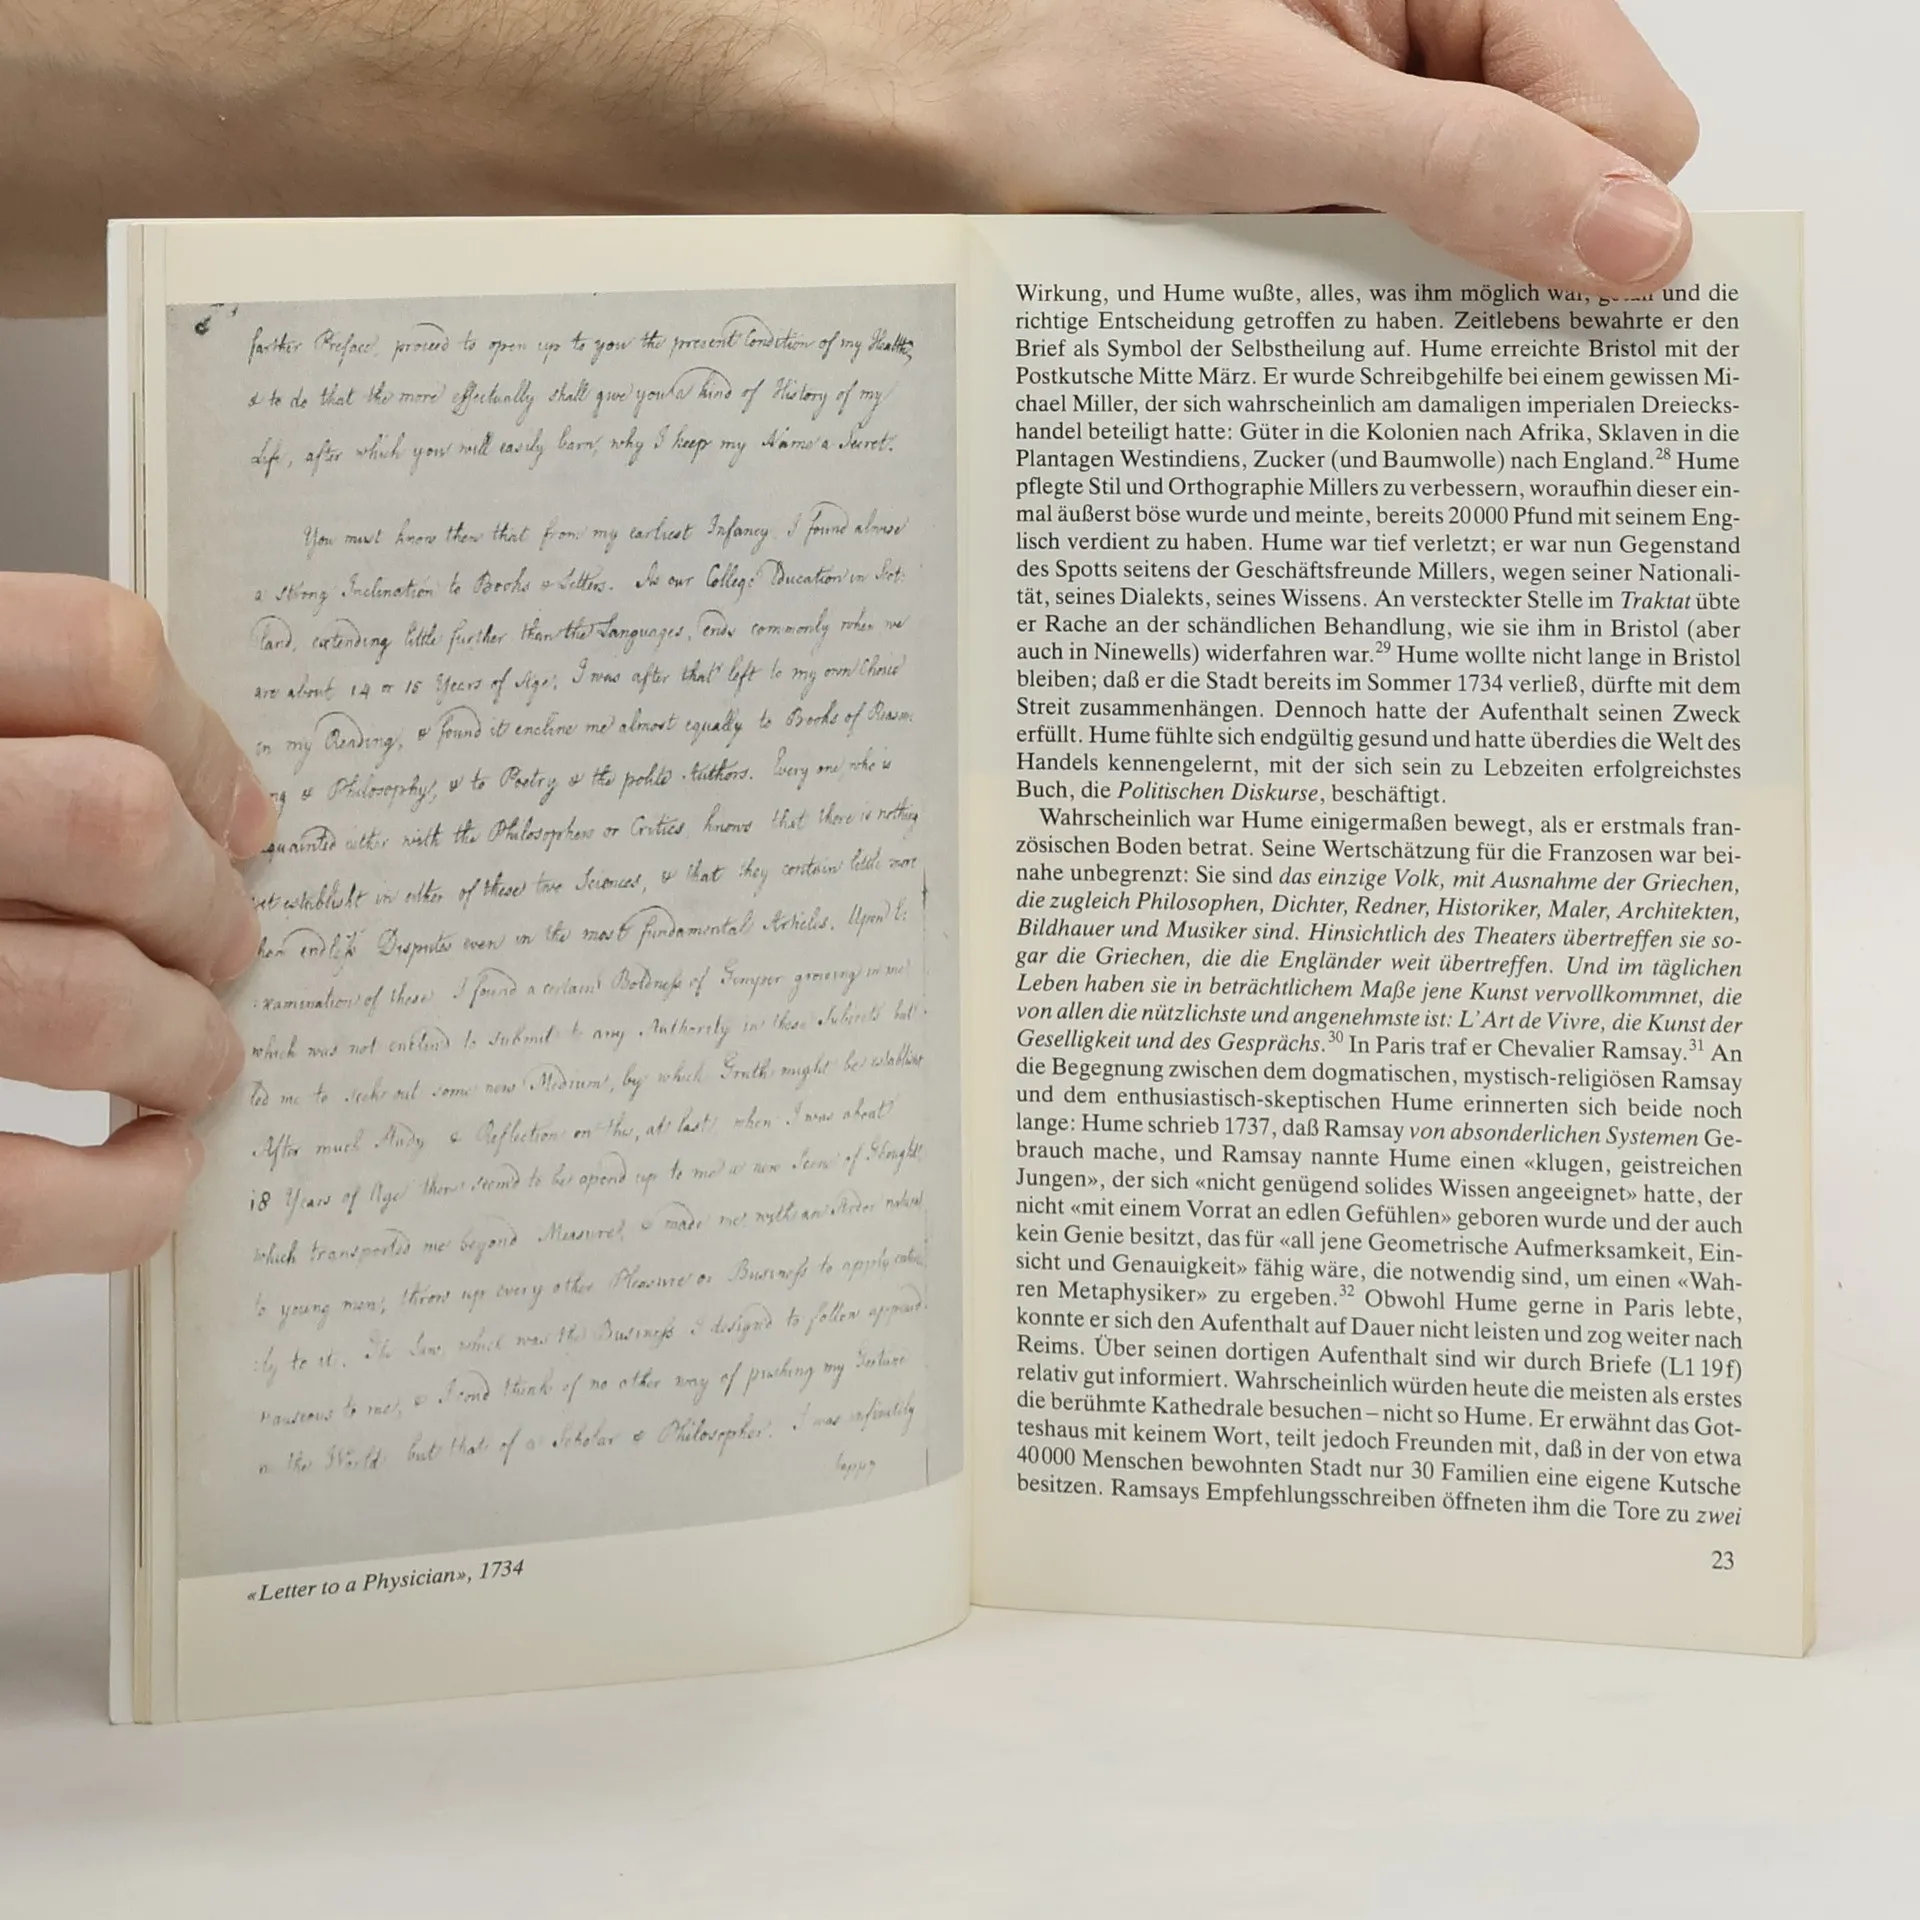 farther Preface, proceed to open up to you the present Condition of my Health,
& to do that the more effectually shall give you a kind of History of my
Life, after which you will easily learn, why I keep my Name a Secret.
You must know then that from my earliest Infancy, I found alwise
a strong Inclination to Books & Letters. As our College Education in Scot-
land, extending little further than the Languages, ends commonly when we
are about 14 or 15 Years of Age, I was after that left to my own Choice
in my Reading, & found it encline me almost equally to Books of Reason-
ng & Philosophy, & to Poetry & the polite Authors. Every one, who is
quainted either with the Philosophers or Critics, knows that there is nothing
yet establisht in either of these two Sciences, & that they contain little more
han endless Disputes even in the most fundamental Articles. Upon
xamination of these, I found a certain Boldness of Temper growing in me
which was not enclind to submit to any Authority in these Subjects but
led me to seek out some new Medium, by which Truth might be establisht
After much Study & Reflection on this, at last, when I was about
18 Years of Age there seem'd to be opend up to me a new Scene of Thought
which transported me beyond Measure, & made me, with an Ardor natural
to young men, throw up every other Pleasure or Business to apply entire
ly to it. The Law, which was the Business I design'd to follow, appeard
nauseous to me, & I coud think of no other way of pushing my Fortune
n the World but that of a Scholar & Philosopher. I was infinitely
happy
«Letter to a Physician», 1734
Wirkung, und Hume wußte, alles, was ihm möglich war, getan und die
richtige Entscheidung getroffen zu haben. Zeitlebens bewahrte er den
Brief als Symbol der Selbstheilung auf. Hume erreichte Bristol mit der
Postkutsche Mitte März. Er wurde Schreibgehilfe bei einem gewissen Mi-
chael Miller, der sich wahrscheinlich am damaligen imperialen Dreiecks-
handel beteiligt hatte: Güter in die Kolonien nach Afrika, Sklaven in die
Plantagen Westindiens, Zucker (und Baumwolle) nach England.28 Hume
pflegte Stil und Orthographie Millers zu verbessern, woraufhin dieser ein-
mal äußerst böse wurde und meinte, bereits 20000 Pfund mit seinem Eng-
lisch verdient zu haben. Hume war tief verletzt; er war nun Gegenstand
des Spotts seitens der Geschäftsfreunde Millers, wegen seiner Nationali-
tät, seines Dialekts, seines Wissens. An versteckter Stelle im Traktat übte
er Rache an der schändlichen Behandlung, wie sie ihm in Bristol (aber
auch in Ninewells) widerfahren war.29 Hume wollte nicht lange in Bristol
bleiben; daß er die Stadt bereits im Sommer 1734 verließ, dürfte mit dem
Streit zusammenhängen. Dennoch hatte der Aufenthalt seinen Zweck
erfüllt. Hume fühlte sich endgültig gesund und hatte überdies die Welt des
Handels kennengelernt, mit der sich sein zu Lebzeiten erfolgreichstes
Buch, die Politischen Diskurse, beschäftigt.
Wahrscheinlich war Hume einigermaßen bewegt, als er erstmals fran-
zösischen Boden betrat. Seine Wertschätzung für die Franzosen war bei-
nahe unbegrenzt: Sie sind das einzige Volk, mit Ausnahme der Griechen,
die zugleich Philosophen, Dichter, Redner, Historiker, Maler, Architekten,
Bildhauer und Musiker sind. Hinsichtlich des Theaters übertreffen sie so-
gar die Griechen, die die Engländer weit übertreffen. Und im täglichen
Leben haben sie in beträchtlichem Maße jene Kunst vervollkommnet, die
von allen die nützlichste und angenehmste ist: L'Art de Vivre, die Kunst der
Geselligkeit und des Gesprächs.30 In Paris traf er Chevalier Ramsay.31 An
die Begegnung zwischen dem dogmatischen, mystisch-religiösen Ramsay
und dem enthusiastisch-skeptischen Hume erinnerten sich beide noch
lange: Hume schrieb 1737, daß Ramsay von absonderlichen Systemen Ge-
brauch mache, und Ramsay nannte Hume einen «klugen, geistreichen
Jungen», der sich «nicht genügend solides Wissen angeeignet» hatte, der
nicht «mit einem Vorrat an edlen Gefühlen» geboren wurde und der auch
kein Genie besitzt, das für «all jene Geometrische Aufmerksamkeit, Ein-
sicht und Genauigkeit» fähig wäre, die notwendig sind, um einen «Wah-
ren Metaphysiker» zu ergeben.32 Obwohl Hume gerne in Paris lebte,
konnte er sich den Aufenthalt auf Dauer nicht leisten und zog weiter nach
Reims. Über seinen dortigen Aufenthalt sind wir durch Briefe (L1 19f)
relativ gut informiert. Wahrscheinlich würden heute die meisten als erstes
die berühmte Kathedrale besuchen – nicht so Hume. Er erwähnt das Got-
teshaus mit keinem Wort, teilt jedoch Freunden mit, daß in der von etwa
40000 Menschen bewohnten Stadt nur 30 Familien eine eigene Kutsche
besitzen. Ramsays Empfehlungsschreiben öffneten ihm die Tore zu zwei
23